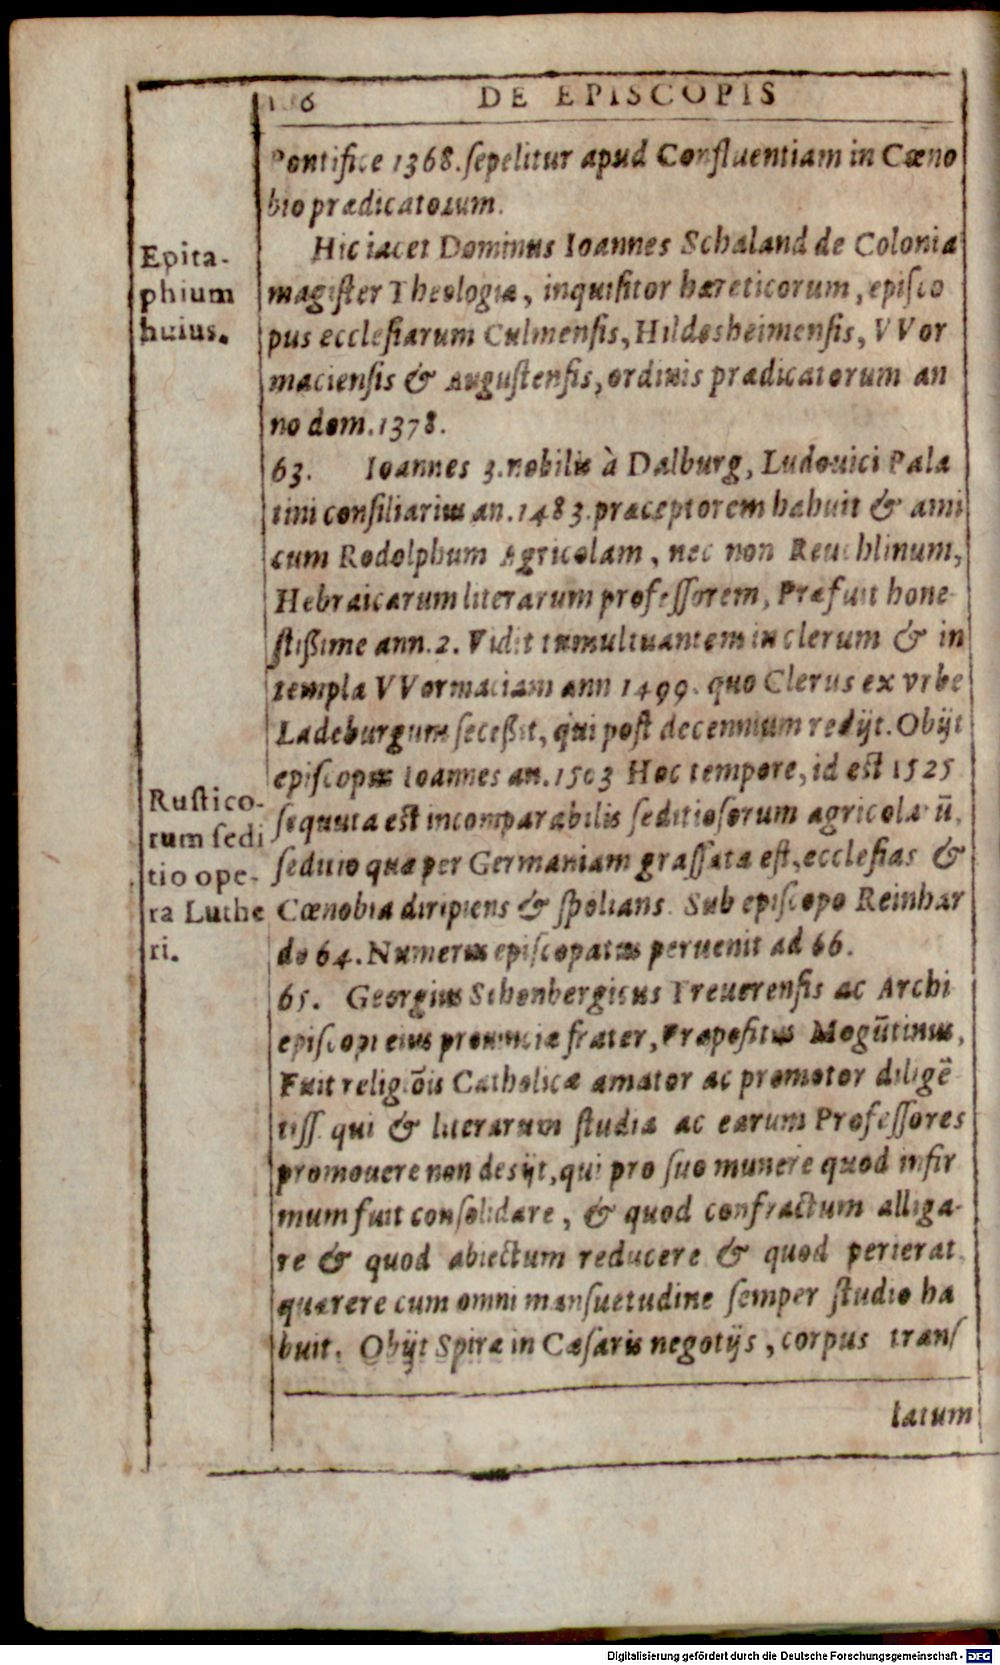 DE EPISCOPIS
Pontifice 1368. ſepelitur apud Confluentiam in Cœno
bio prædicatorum.
Epita-
phium
huius.
Hic iacet Dominus Ioannes Schaland de Colonia
magiſter Theologiæ, inquiſitor hæreticorum, epiſco
pus eccleſiarum Culmenſis, Hildesheimenſis, VVor
macienſis & Auguſtenſis, ordinis prædicatorum an
no dom. 1378.
63. Ioannes 3. nobilis à Dalburg, Ludouici Pala
tini conſiliarius an. 1483. præceptorem habuit & ami
cum Rodolphum Agricolam, nec non Reuchlinum,
Hebraicarum literarum profeſſorem, Præfuit hone-
ſtißime ann. 2. Vidit tumultuantem in clerum & in
templa VVormaciam ann 1499. quo Clerus ex vrbe
Ladeburgum ſeceßit, qui poſt decennium redijt. Obijt
epiſcopus Ioannes an. 1503 Hoc tempore, id eſt 1525
Ruſtico-
rum ſedi
tio ope-
ra Luthe
ri.
ſequuta eſt incomparabilis ſeditioſorum agricolarū,
ſeditio quæ per Germaniam graſſata eſt, eccleſias &
Cœnobia diripiens & ſpolians. Sub epiſcopo Reinhar
do 64. Numerus epiſcopatus peruenit ad 66.
65. Georgius Schonbergicus Treuerenſis ac Archi
epiſcopi eius prouinciæ frater, Præpoſitus Mogūtinus,
Fuit religiōis Catholicæ amator ac promotor diligē
tiſſ. qui & literarum ſtudia ac earum Profeſſores
promouere non desijt, qui pro ſuo munere quod infir
mum fuit conſolidare, & quod confractum alliga-
re & quod abiectum reducere & quod perierat
quærere cum omni manſuetudine ſemper ſtudio ha
buit. Obijt Spiræ in Cæſaris negotijs, corpus tranſ
latum
Digitalisierung gefördert durch die Deutsche Forschungsgemeinschaft - DFG